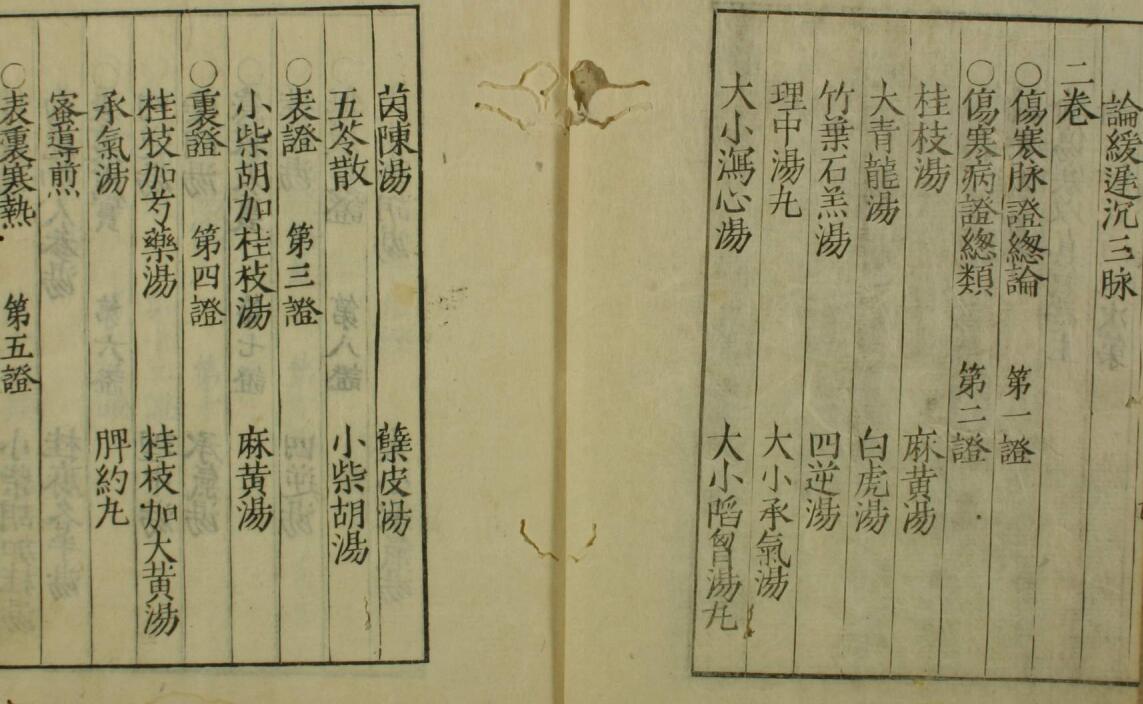 論緩遲沉三脉
二卷
○傷寒脉證緫論　第一證
○傷寒病證緫類　第二證
桂枝湯　麻黄湯
大青龍湯　白虎湯
竹葉石羔湯　四逆湯
理中湯丸　大小承氣湯
大小瀉心湯　大小陷胷湯丸
茵陳湯　蘗皮湯
五苓散　小柴胡湯
○表證　第三證
小柴胡加桂枝湯　麻黄湯
○裏證　第四證
桂枝加芍藥湯　桂枝加大黄湯
承氣湯　脾約丸
蜜導煎
○表裏寒熱　第五證